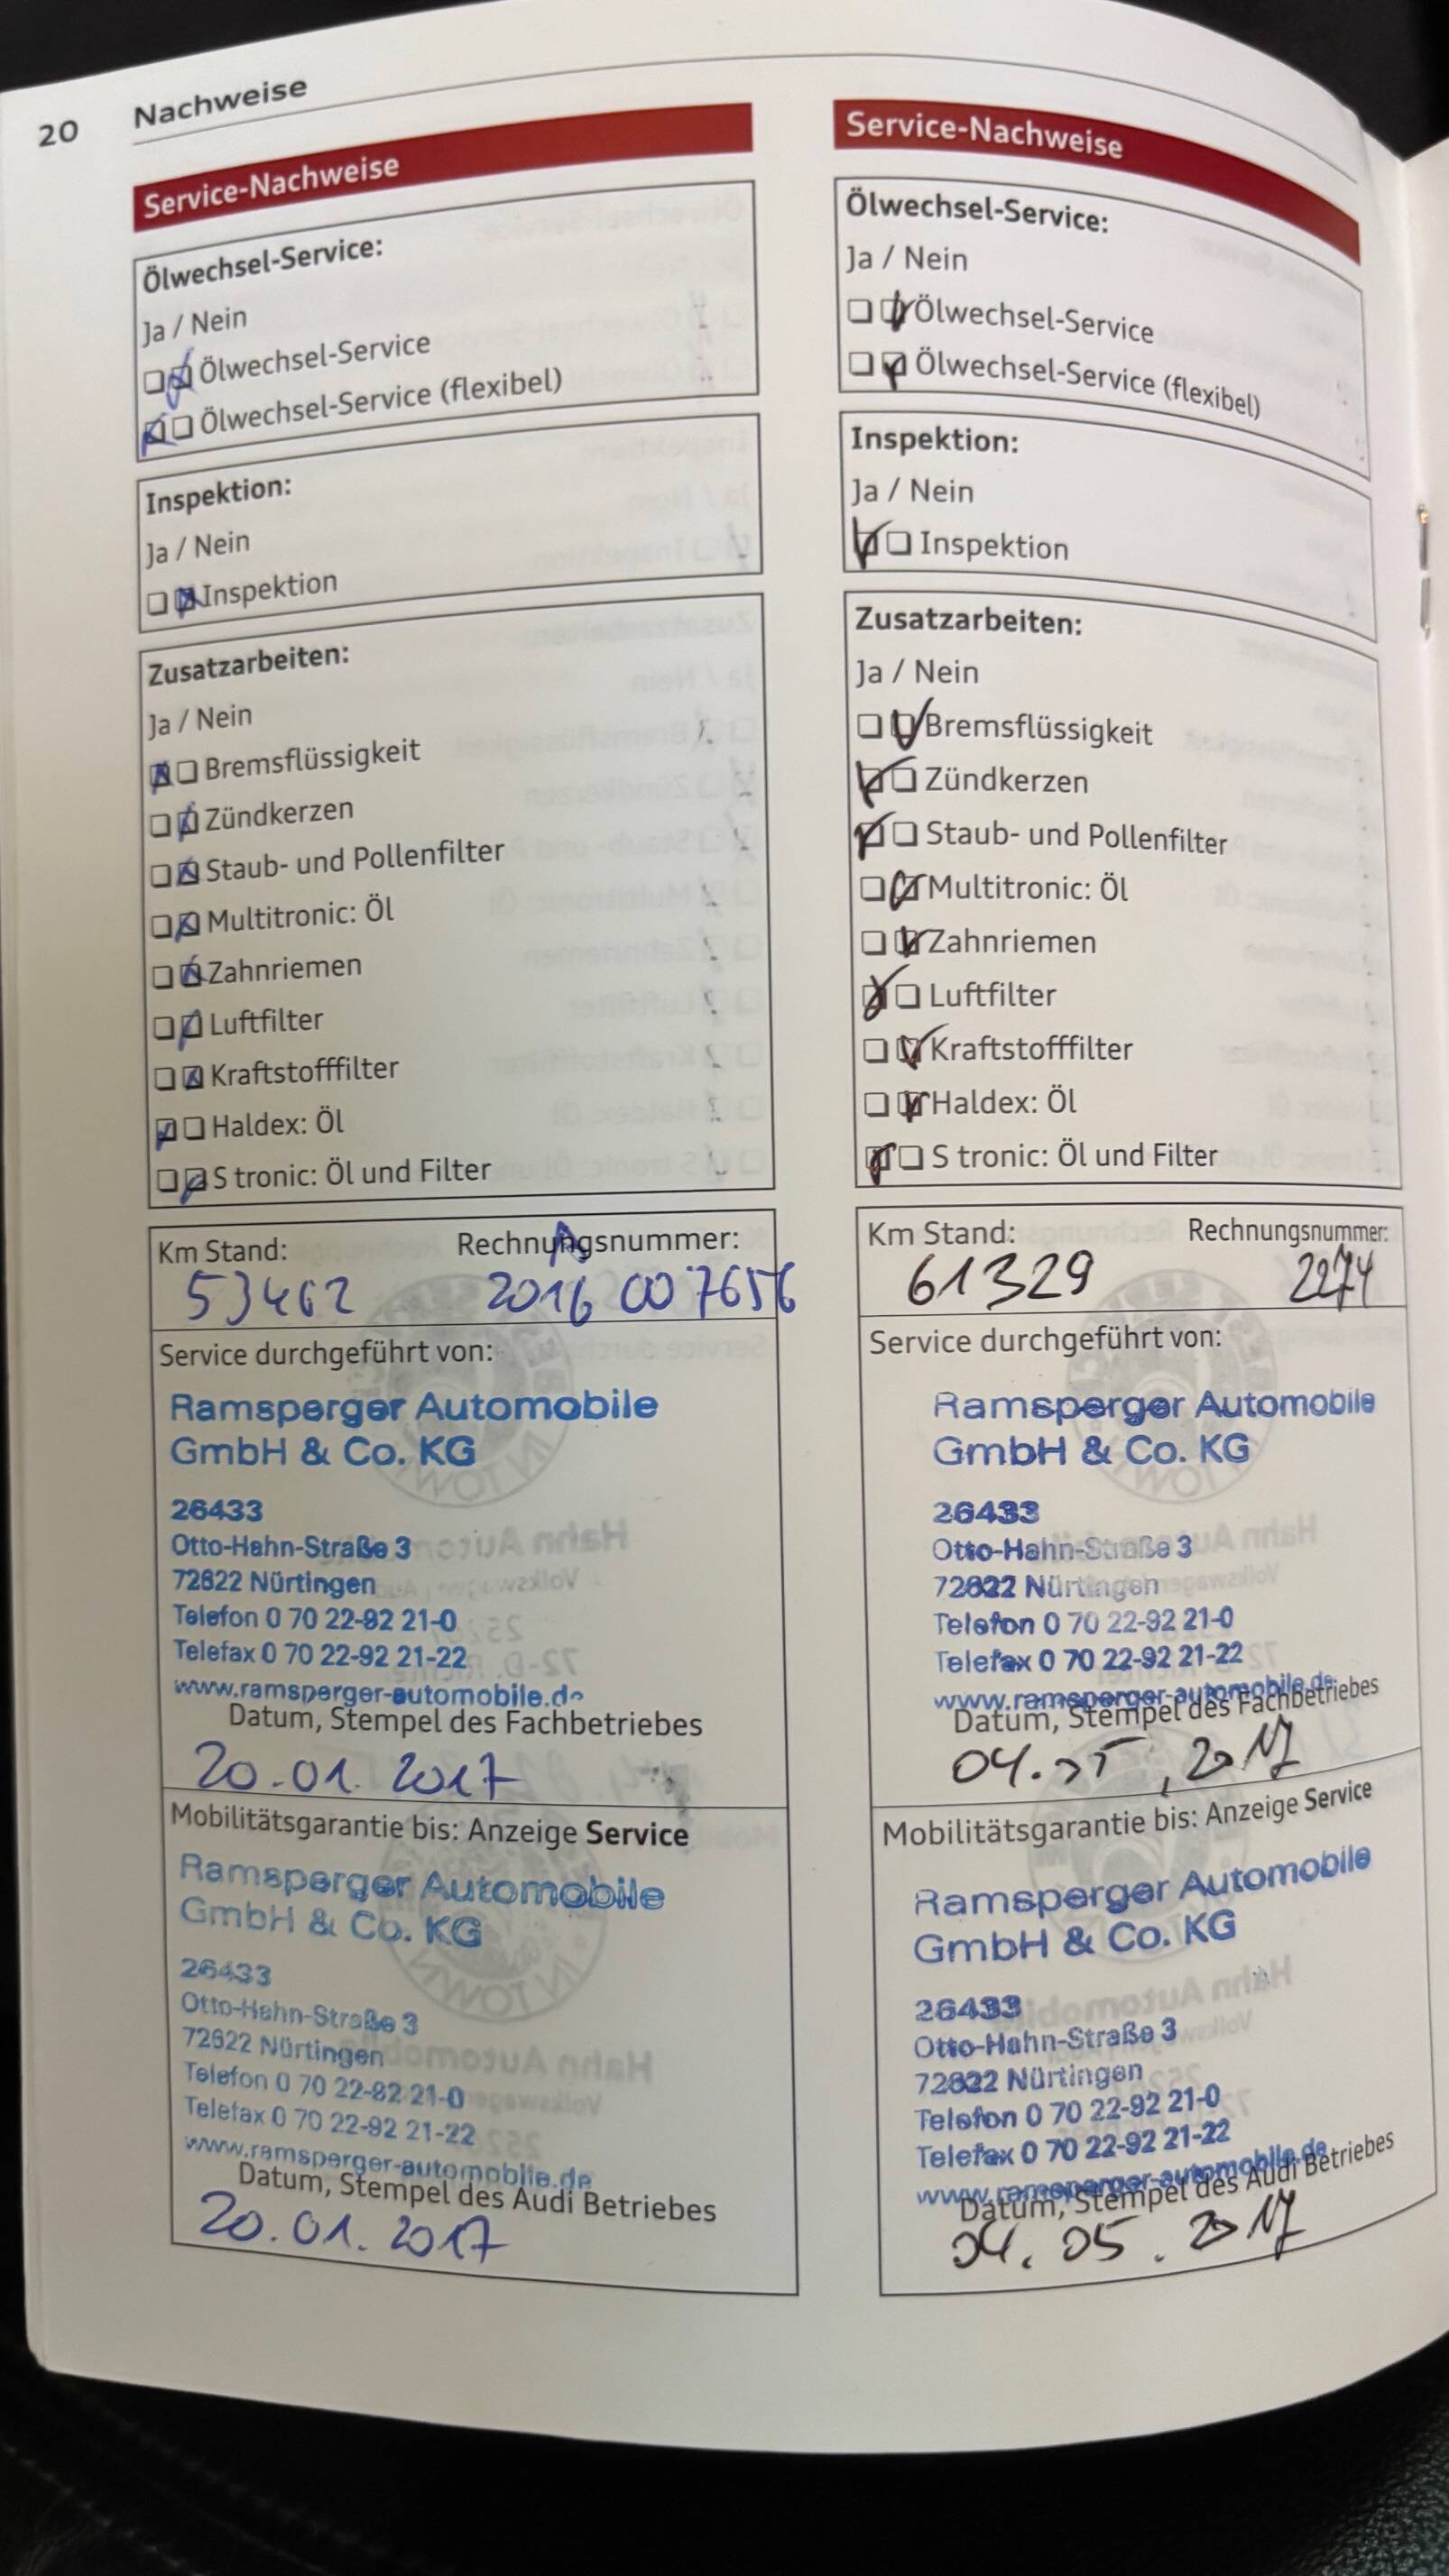 20 Nachweise
Service-Nachweise
Ölwechsel-Service:
Ja / Nein
Ölwechsel-Service
Ölwechsel-Service (flexibel)
Inspektion:
Ja / Nein
Inspektion
Zusatzarbeiten:
Ja / Nein
Bremsflüssigkeit
Zündkerzen
Staub- und Pollenfilter
Multitronic: Öl
Zahnriemen
Luftfilter
Kraftstofffilter
Haldex: Öl
S tronic: Öl und Filter
Km Stand: Rechnungsnummer:
53462 2016 007656
Service durchgeführt von:
Ramsperger Automobile
GmbH & Co. KG
26433
Otto-Hahn-Straße 3
72622 Nürtingen
Telefon 0 70 22-92 21-0
Telefax 0 70 22-92 21-22
www.ramsperger-automobile.de
Datum, Stempel des Fachbetriebes
20.01.2017
Mobilitätsgarantie bis: Anzeige Service
Ramsperger Automobile
GmbH & Co. KG
26433
Otto-Hahn-Straße 3
72622 Nürtingen
Telefon 0 70 22-92 21-0
Telefax 0 70 22-92 21-22
www.ramsperger-automobile.de
Datum, Stempel des Audi Betriebes
20.01.2017
Service-Nachweise
Ölwechsel-Service:
Ja / Nein
Ölwechsel-Service
Ölwechsel-Service (flexibel)
Inspektion:
Ja / Nein
Inspektion
Zusatzarbeiten:
Ja / Nein
Bremsflüssigkeit
Zündkerzen
Staub- und Pollenfilter
Multitronic: Öl
Zahnriemen
Luftfilter
Kraftstofffilter
Haldex: Öl
S tronic: Öl und Filter
Km Stand: Rechnungsnummer:
61329 2274
Service durchgeführt von:
Ramsperger Automobile
GmbH & Co. KG
26433
Otto-Hahn-Straße 3
72622 Nürtingen
Telefon 0 70 22-92 21-0
Telefax 0 70 22-92 21-22
www.ramsperger-automobile.de
Datum, Stempel des Fachbetriebes
04.05.2017
Mobilitätsgarantie bis: Anzeige Service
Ramsperger Automobile
GmbH & Co. KG
26433
Otto-Hahn-Straße 3
72622 Nürtingen
Telefon 0 70 22-92 21-0
Telefax 0 70 22-92 21-22
www.ramsperger-automobile.de
Datum, Stempel des Audi Betriebes
04.05.2017